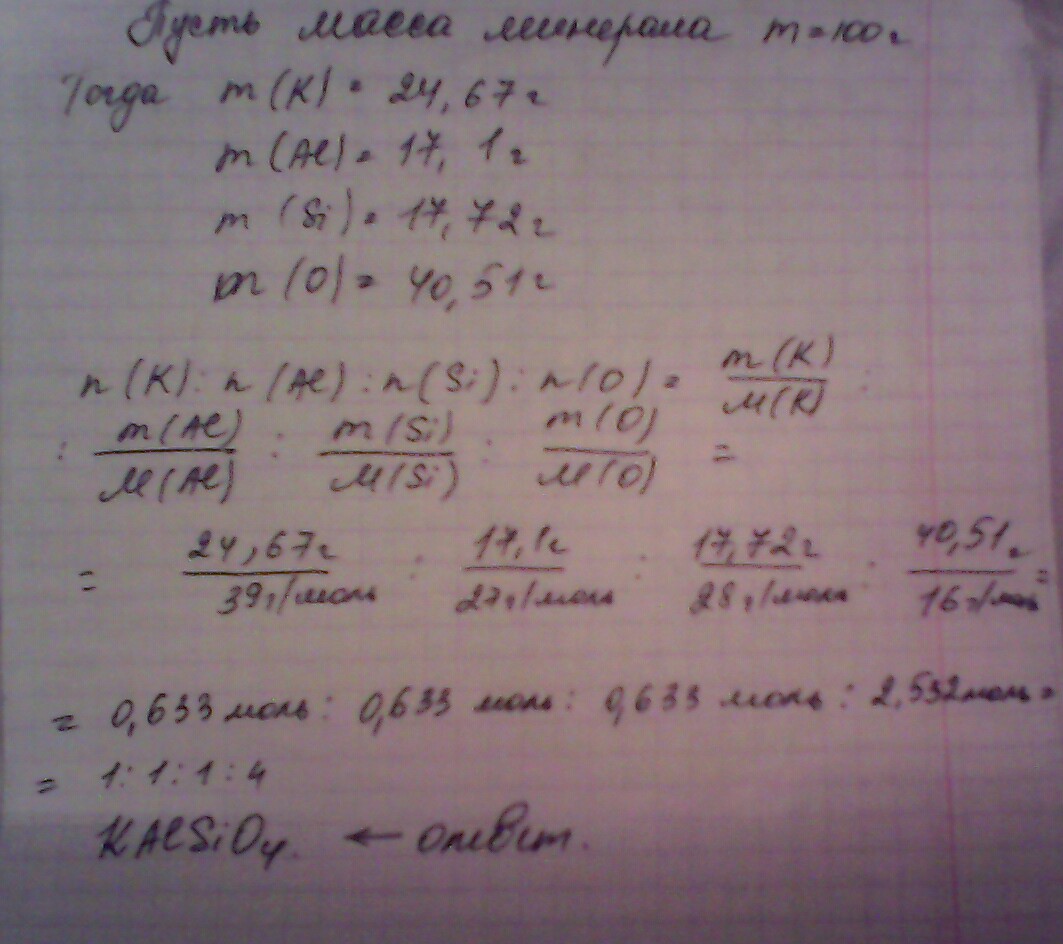 Пусть масса минерала m=100г
Тогда m(K) = 24,67г
m(Al) = 17,1г
m(Si) = 17,72г
m(O) = 40,51г
n(K) : n(Al) : n(Si) : n(O) = m(K)/M(K) :
: m(Al)/M(Al) : m(Si)/M(Si) : m(O)/M(O) =
= 24,67г/39г/моль : 17,1г/27г/моль : 17,72г/28г/моль : 40,51г/16г/моль =
= 0,633 моль : 0,633 моль : 0,633 моль : 2,532моль =
= 1:1:1:4
KAlSiO₄. ← ответ.